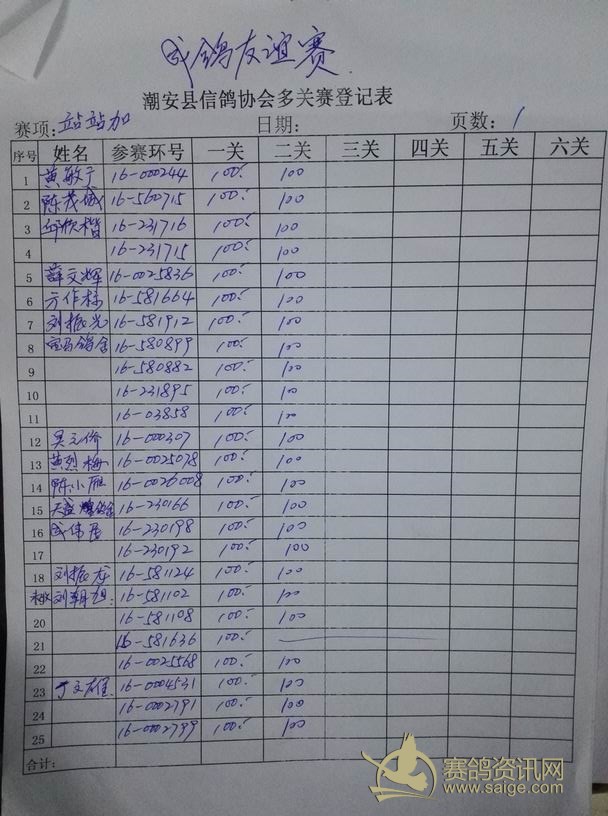 成鸽友谊赛
潮安县信鸽协会多关赛登记表
赛项: 站站加 日期: 页数: 1
序号 姓名 参赛环号 一关 二关 三关 四关 五关 六关
1 黄敏于 16-000244 100 100
2 陈茂城 16-560715 100 100
3 邱欣楷 16-231716 100 100
4 16-231715 100 100
5 薛文辉 16-0025836 100 100
6 方作标 16-581664 100 100
7 刘振光 16-581912 100 100
8 宝马鸽舍 16-580899 100 100
9 16-580882 100 100
10 16-231895 100 100
11 16-03858 100 100
12 吴元侨 16-000307 100 100
13 黄烈梅 16-0025078 100 100
14 陈小雁 16-0026008 100 100
15 天益 鸽舍 16-230166 100 100
16 成伟 16-230198 100 100
17 16-230192 100 100
18 刘振龙 16-581124 100 100
刘朝旭 16-581102 100 100
20 16-581108 100 100
21 16-581636 100
22 16-0025568 100 100
23 于文雄 16-0004531 100 100
24 16-0002791 100 100
25 16-0002799 100 100
合计:
赛鸽资讯网
www.saige.com